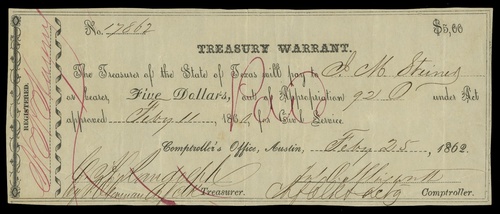 No. 17862 $5,00
TREASURY WARRANT.
The Treasurer of the State of Texas will pay to J. M. Steiner
or bearer, Five Dollars, out of Appropriation 92 0 under Act
approved Feby 11 186 for Civil Service.
Comptroller's Office, Austin, Feby 25, 1862
Treasurer. Comptroller.
REGISTERED.
Paid